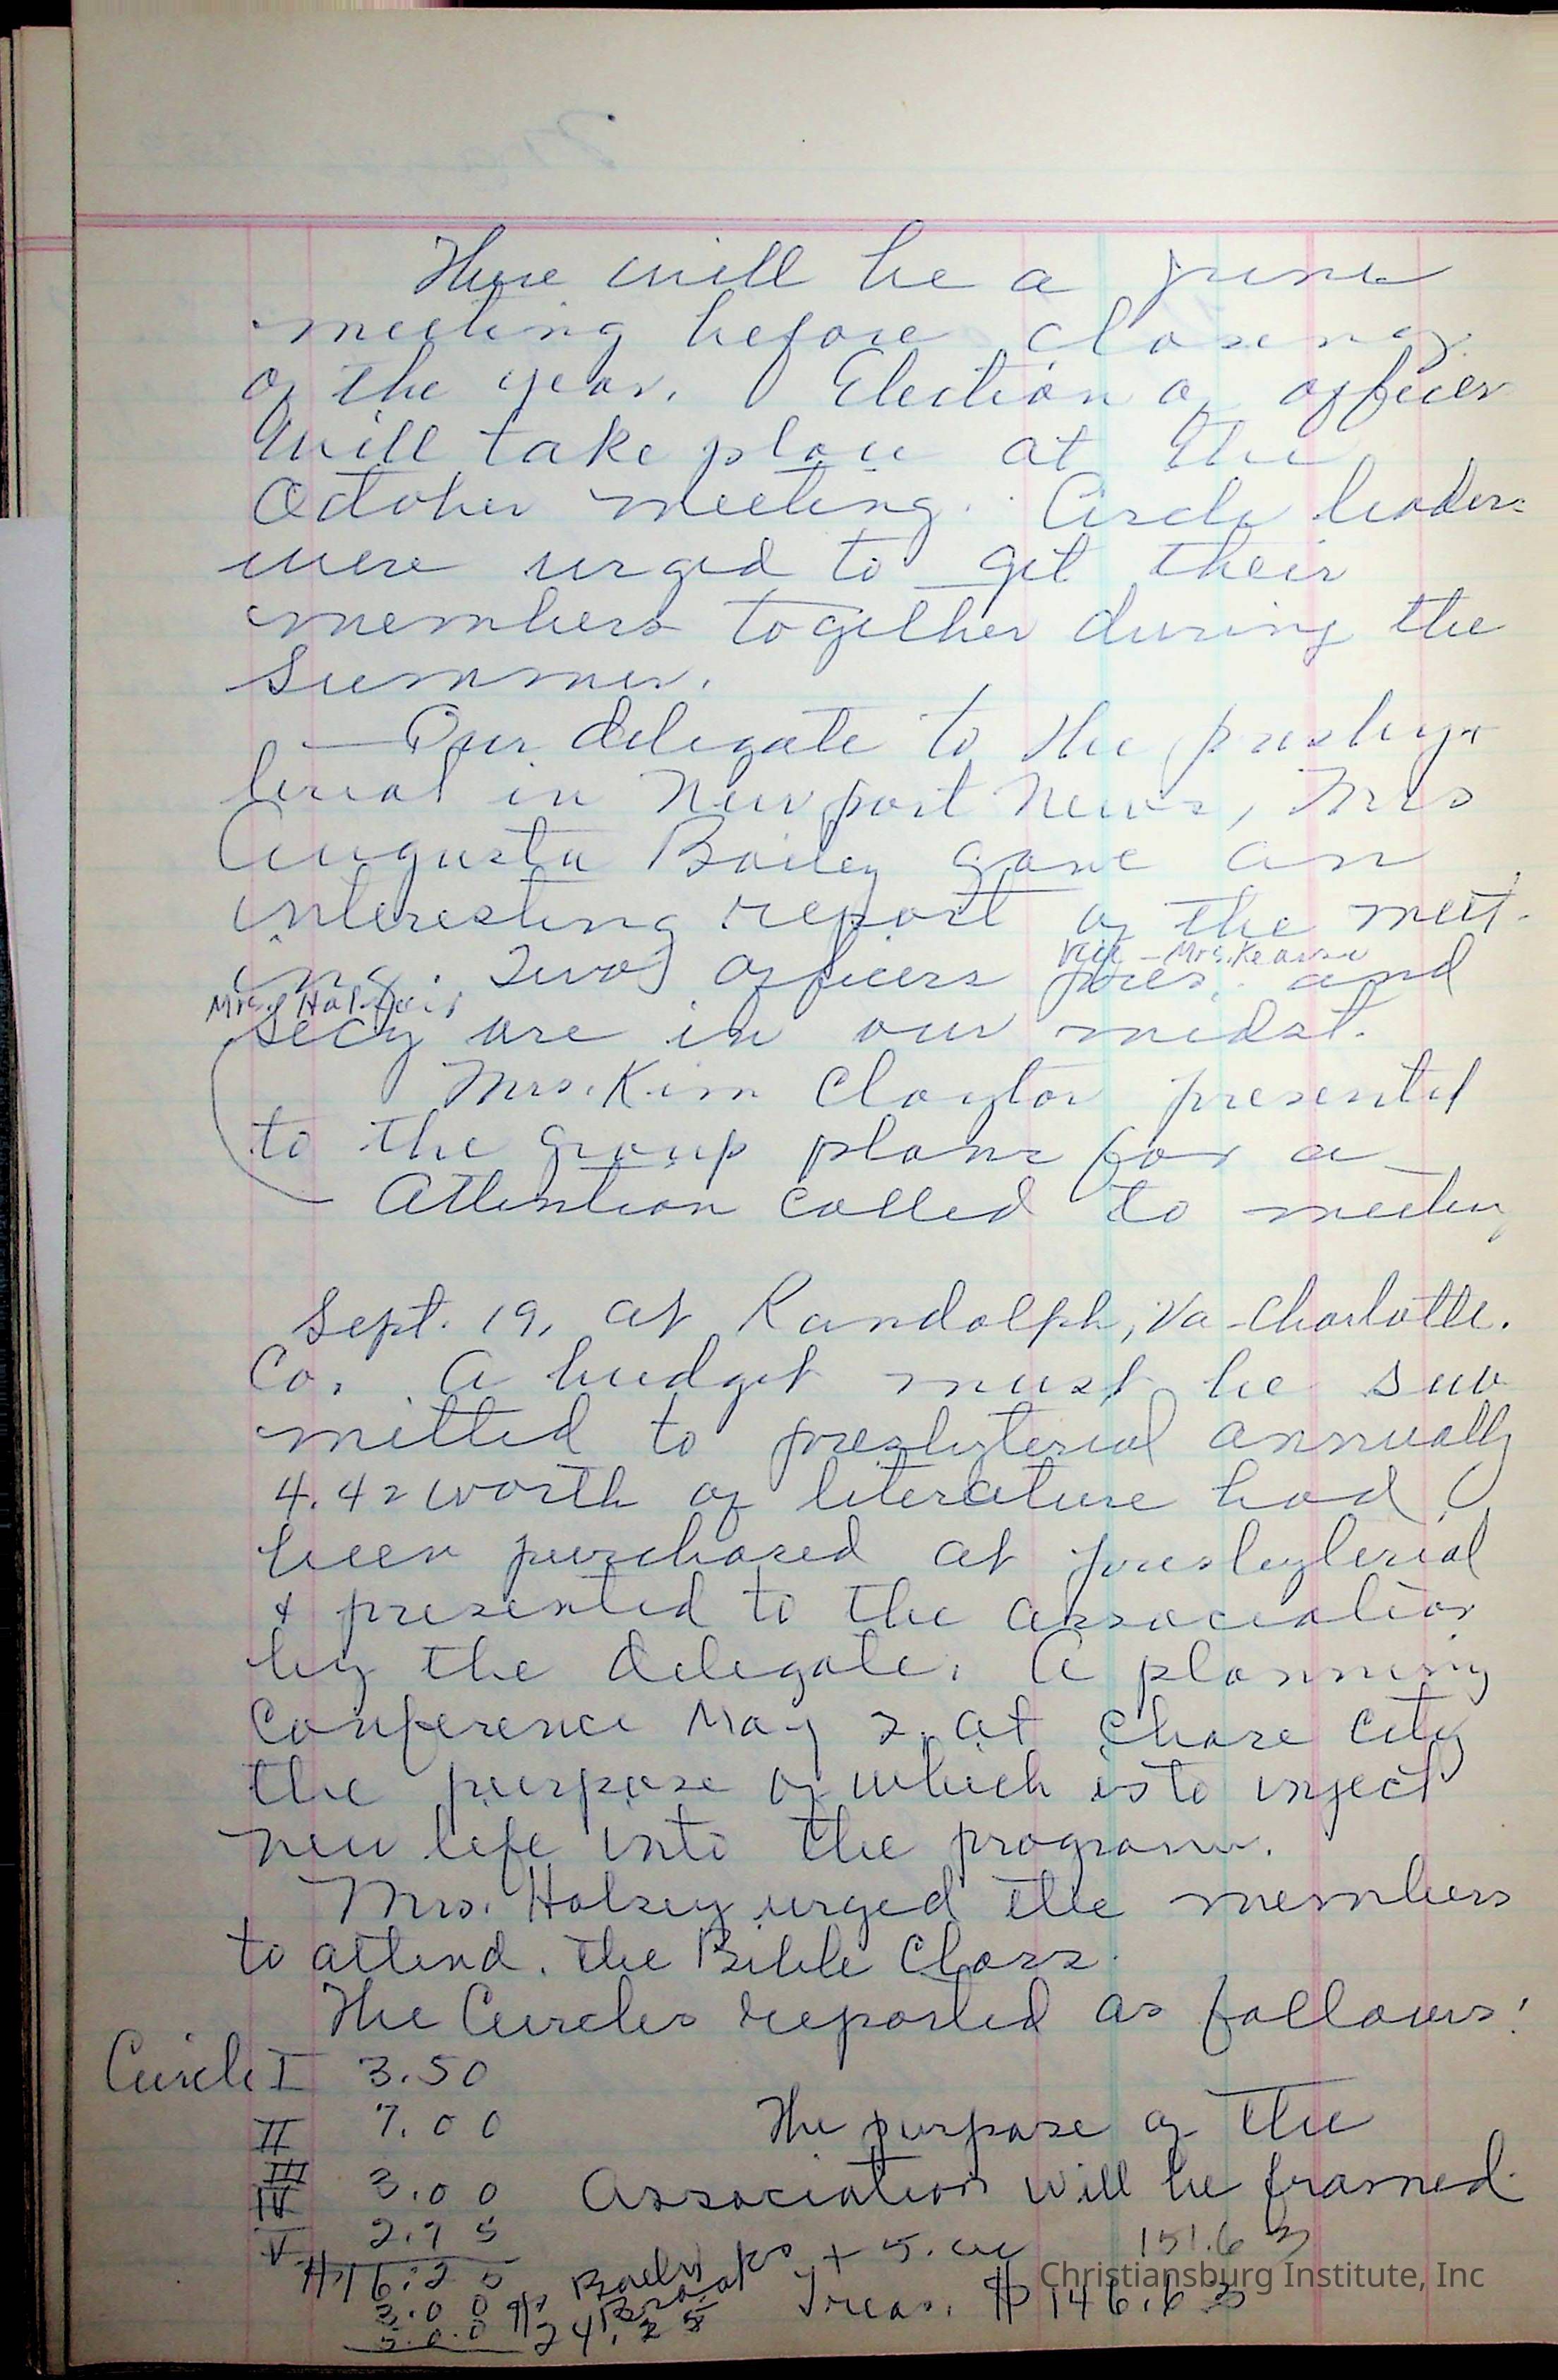 There will be a June
meeting before closing
of the year. Election of officers
will take place at the
October meeting. Circle leaders
were urged to get their
members together during the
summer.
Our delegate to the presby-
terial in Newport News, Mrs
Augusta Bailey gave an
interesting report of the meet-
Vice - Mrs. Kearse
ing. Two officers pres. and
Mrs. Halsey
secy are in our midst.
Mrs. Kim Clayton presented
to the group plans for a
Attention called to meeting
Sept. 19, at Randolph, Va - Charlotte
Co. A budget must be sub
mitted to presbyterial annually
4.42 worth of literature had
been purchased at presbyterial
& presented to the association
by the delegate. A planning
conference May 2, at Chase City
the purpose of which is to inject
new life into the program.
Mrs. Halsey urged the members
to attend. the Bible Class.
The Circles reported as follows:
Circle I 3.50
II 7.00
The purpose of the
III
IV 3.00
Association will be framed.
V 2.75
$16.25
Baily
Brooks + 5.00
151.63
3.00
5.00
$24.25
Treas. $146.63
Christiansburg Institute, Inc